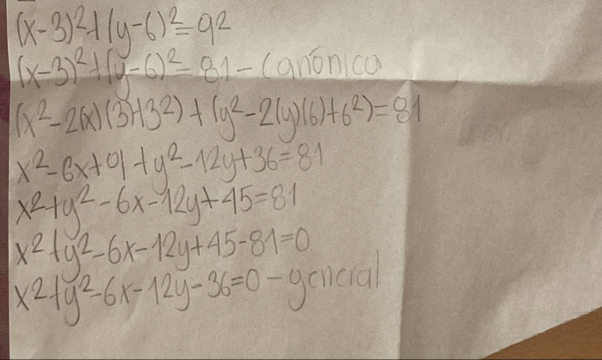 (x-3)²+(y-6)²=9²
(x-3)²+(y-6)²=81-Canónica
(x²-2(x)(3)+3²)+(y²-2(y)(6)+6²)=81
x²-6x+9+y²-12y+36=81
x²+y²-6x-12y+45=81
x²+y²-6x-12y+45-81=0
x²+y²-6x-12y-36=0-general